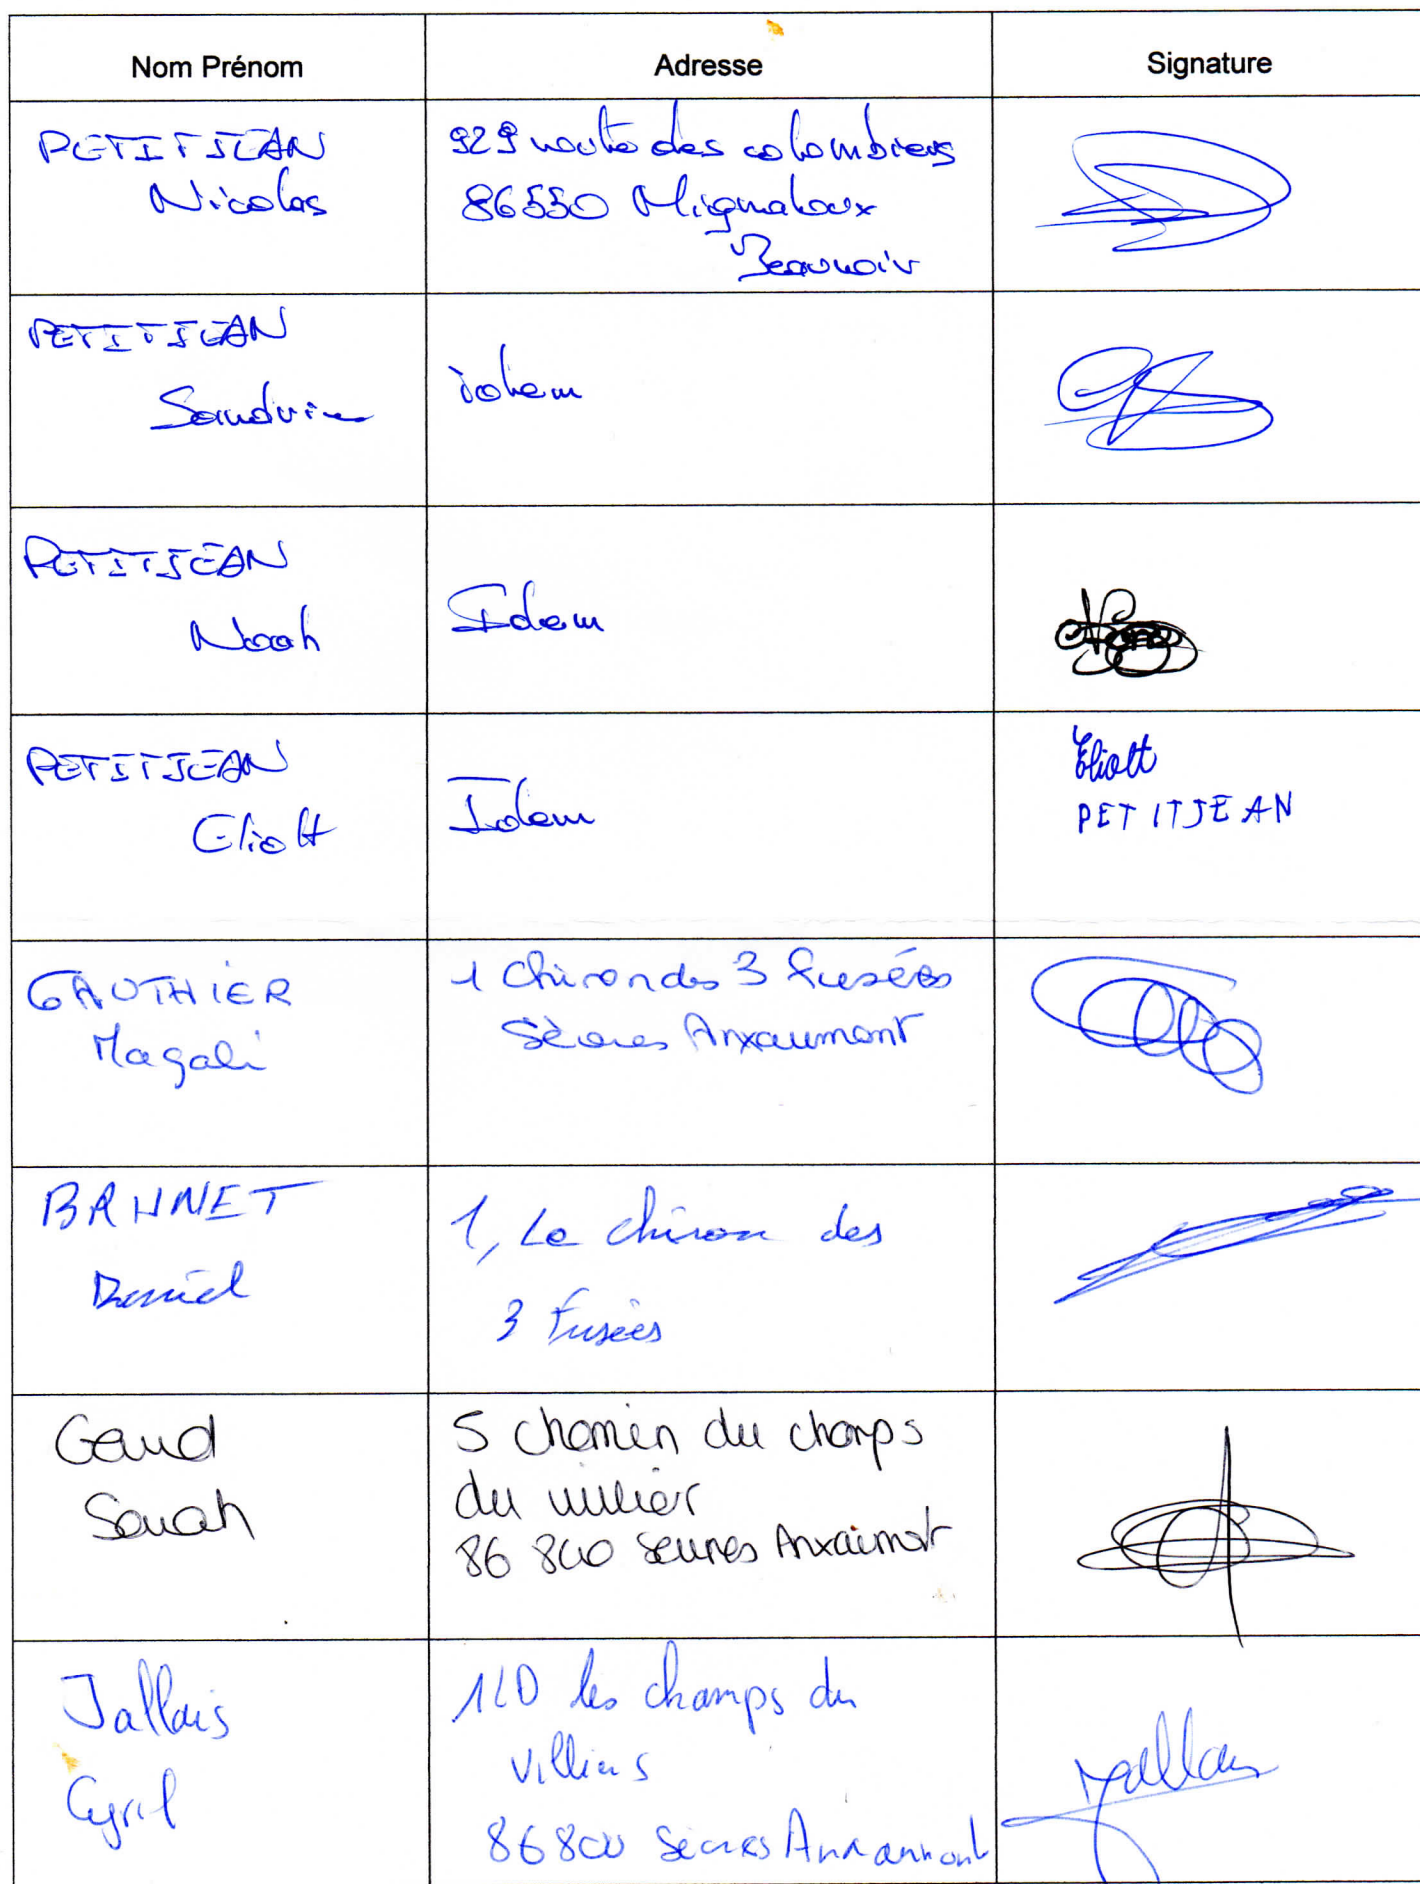 Nom Prénom
Adresse
Signature
PETITJEAN
Nicolas
929 route des colombiers
86550 Mignaloux
Beauvoir
PETITJEAN
Sandrine
idem
PETITJEAN
Noah
Idem
PETITJEAN
Eliott
Idem
Eliott
PETITJEAN
GAUTHIER
Magali
1 Chiron des 3 fusées
Sèvres Anxaumont
BANNET
Daniel
1, Le chiron des
3 Fusées
Gaud
Sarah
5 chemin du champs
du
86 800 Sevres Anxaimot
Jallais
Cyril
les champs du
Villiers
86800 Sèvres Anxaumont
Jallais